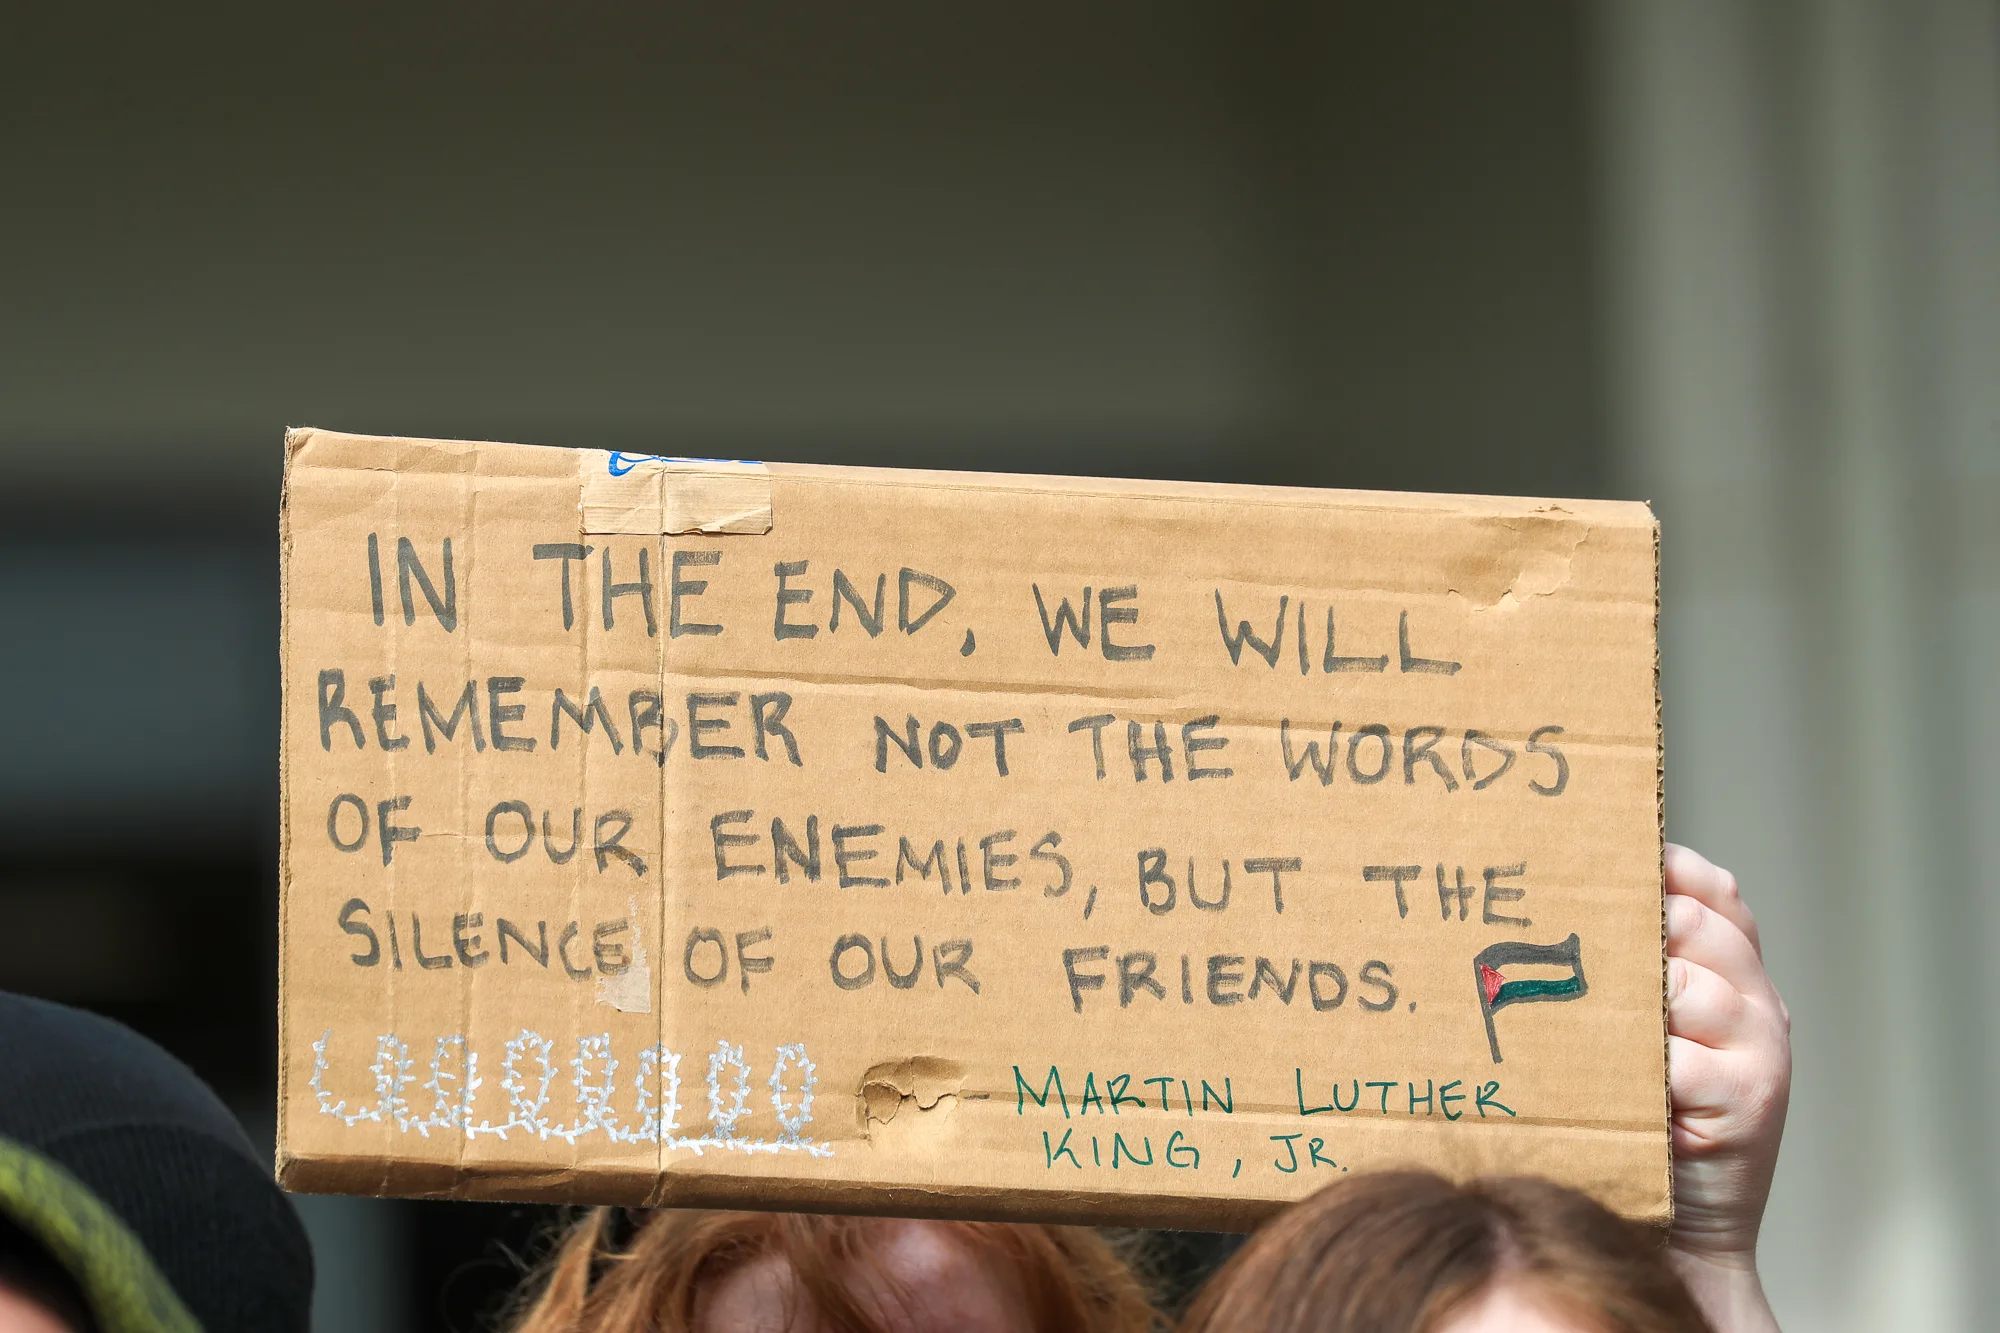 IN THE END, WE WILL
REMEMBER NOT THE WORDS
OF OUR ENEMIES, BUT THE
SILENCE OF OUR FRIENDS.
- MARTIN LUTHER
KING, JR.